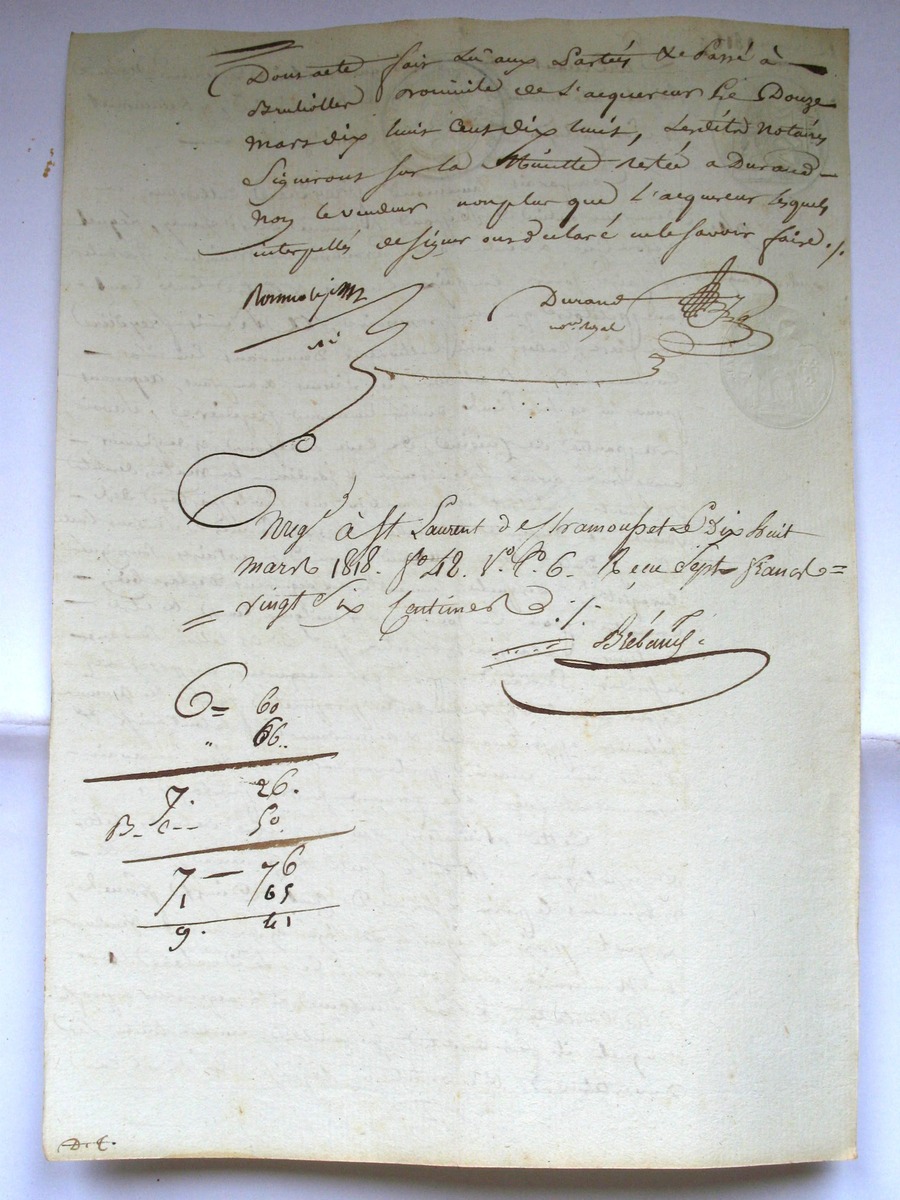 Dont acte fait Lu aux Parties & Passé à
Brullioles Domicile de L'acquereur Le Douze
mars dix huit Cent dix huit, Lesdits Notaires
Signeront sur la Minutte restée a Durand
Non le vendeur nonplus que L'acquereur lesquels
interpellés de signer ont declaré ne le savoir faire ./.
Durand
nore Royal
Enregé à St Laurent de Chamousset Le Dix huit
mars 1818. fo 42. Vo C. 6. Recu Sept francs
vingt Six Centimes D ./.
6 = 60
" 66.
7. 26.
B- c-- 50.
7 — 76
1 65
9. 41
D. C.